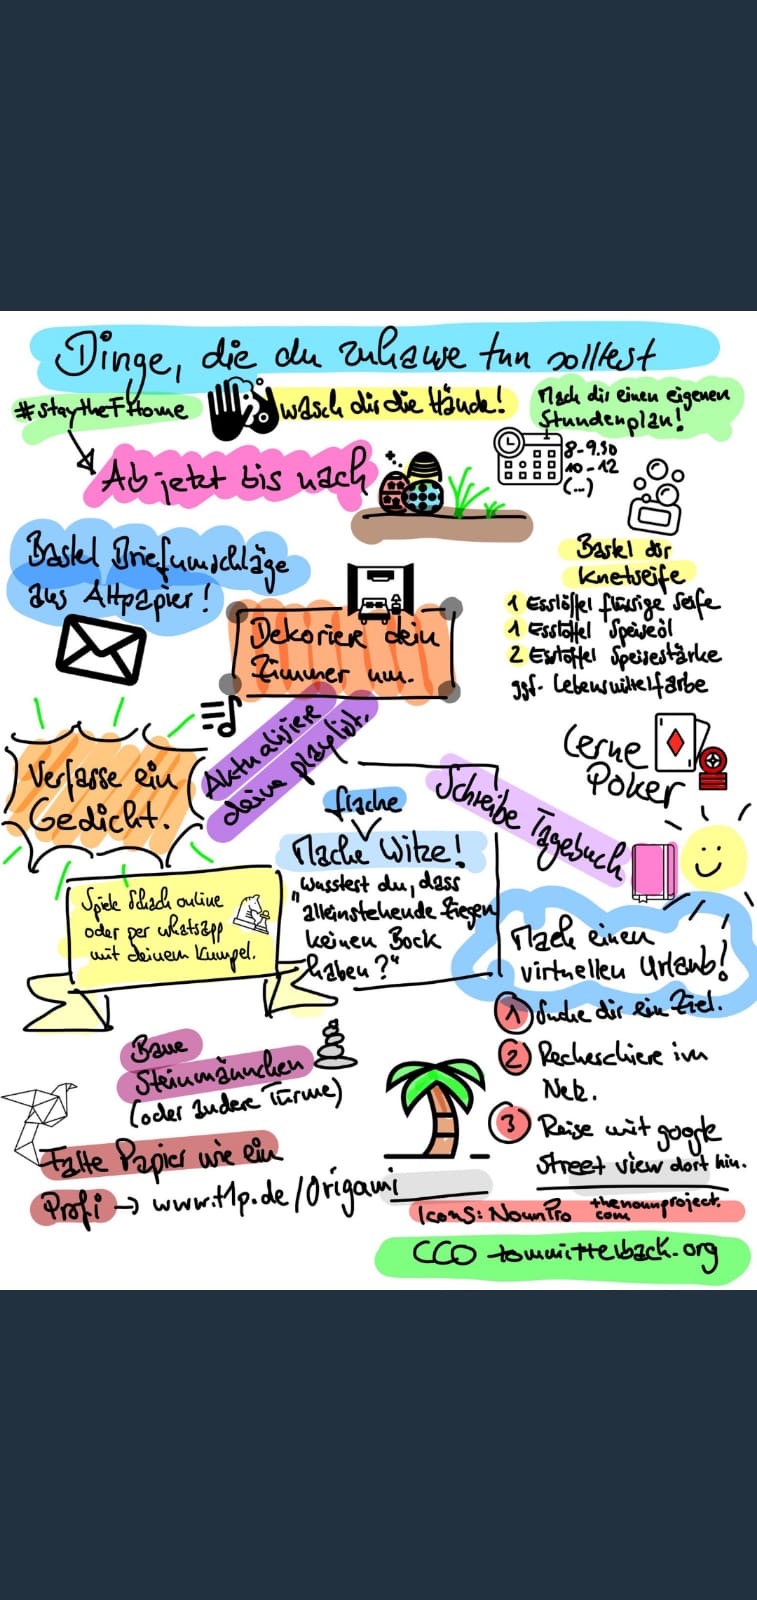 Dinge, die du zuhause tun solltest
#stayTheFHome
wasch dir die Hände!
Mach dir einen eigenen
Stundenplan!
8-9.30
10-12
(...)
Ab jetzt bis nach
Bastel Briefumschläge
aus Altpapier!
Bastel dir
Knetseife
1 Esslöffel flüssige Seife
1 Esslöffel Speiseöl
2 Esslöffel Speisestärke
ggf. Lebensmittelfarbe
Dekoriere dein
Zimmer um.
Aktualisiere
deine playlist.
Verfasse ein
Gedicht.
Lerne
Poker
Schreibe Tagebuch
flache
Mache Witze!
"Wusstest du, dass
alleinstehende Ziegen
keinen Bock
haben?"
Spiele Schach online
oder per whatsapp
mit deinem Kumpel.
Mach einen
virtuellen Urlaub!
1 Suche dir ein Ziel.
2 Recheschiere im
Netz.
3 Reise mit google
street view dort hin.
Baue
Steinmännchen
(oder andere Türme)
Falte Papier wie ein
Profi → www.t1p.de/Origami
Icons: NounPro thenounproject.
com
CC0 tommittelbach.org